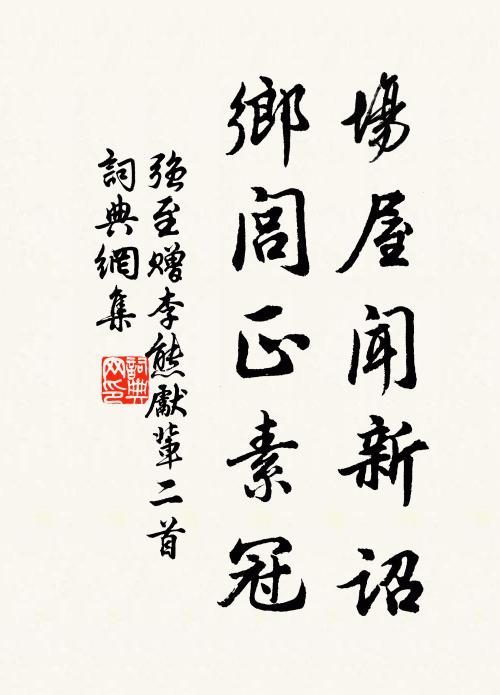 場屋聞新詔
鄉閭正素冠
強至贈李熊獻輩二首
詞典網集
詞典网印